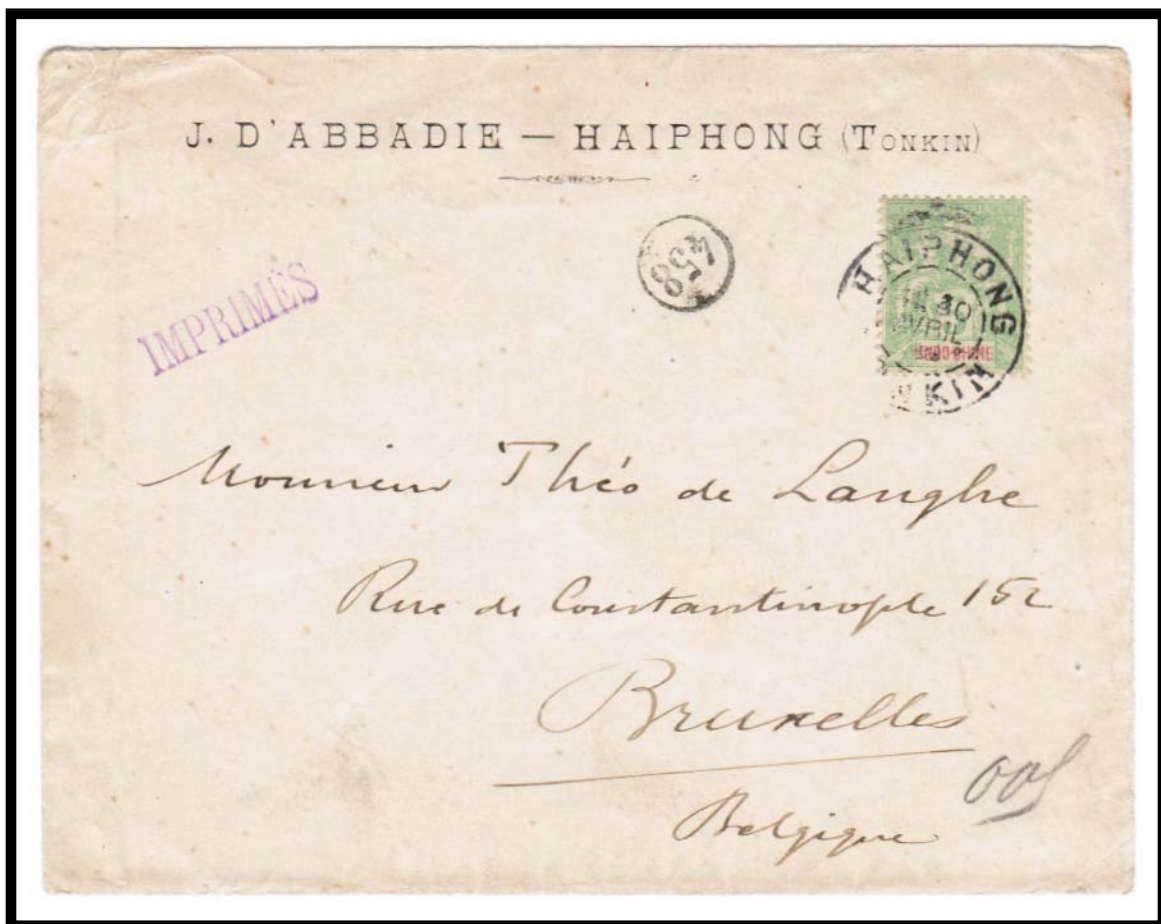 J. D'ABBADIE — HAIPHONG (TONKIN)
458
HAIPHONG
30
AVRIL
INDO-CHINE
KIN
IMPRIMÉS
Monsieur Théo de Langhe
Rue de Constantinople 152
Bruxelles
Belgique